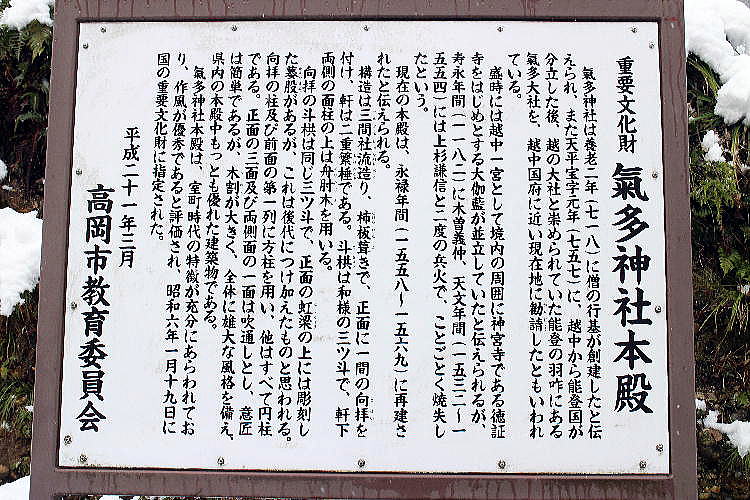 重要文化財
氣多神社本殿
氣多神社は養老二年(七一八)に僧の行基が創建したと伝
えられ、また天平宝字元年(七五七)に、越中から能登国が
分立した後、越の大社と崇められていた能登の羽咋にある
氣多大社を、越中国府に近い現在地に勧請したともいわれ
ている。
盛時には越中一宮として境内の周囲に神宮寺である徳証
寺をはじめとする大伽藍が並立していたと伝えられるが、
寿永年間(一一八二)に木曽義仲、天文年間(一五三二～一
五五四)には上杉謙信と二度の兵火で、ことごとく焼失し
たという。
現在の本殿は、永禄年間(一五五八～一五六九)に再建さ
れたと伝えられる。
構造は三間社流造り、杮板葺きで、正面に一間の向拝を
付け、軒は二重繁棰である。斗栱は和様の三ツ斗で、軒下
両側の面柱の上は舟肘木を用いる。
向拝の斗栱は同じ三ツ斗で、正面の虹梁の上には彫刻し
た蟇股があるが、これは後代につけ加えたものと思われる。
向拝の柱及び前面の第一列に方柱を用い、他はすべて円柱
である。正面の三面及び両側面の一面は吹通しとし、意匠
は簡単であるが、木割が大きく、全体に雄大な風格を備え、
県内の本殿中もっとも優れた建築物である。
氣多神社本殿は、室町時代の特徴が充分にあらわれてお
り、作風が優秀であると評価され、昭和六年一月十九日に
国の重要文化財に指定された。
平成二十一年三月
高岡市教育委員会